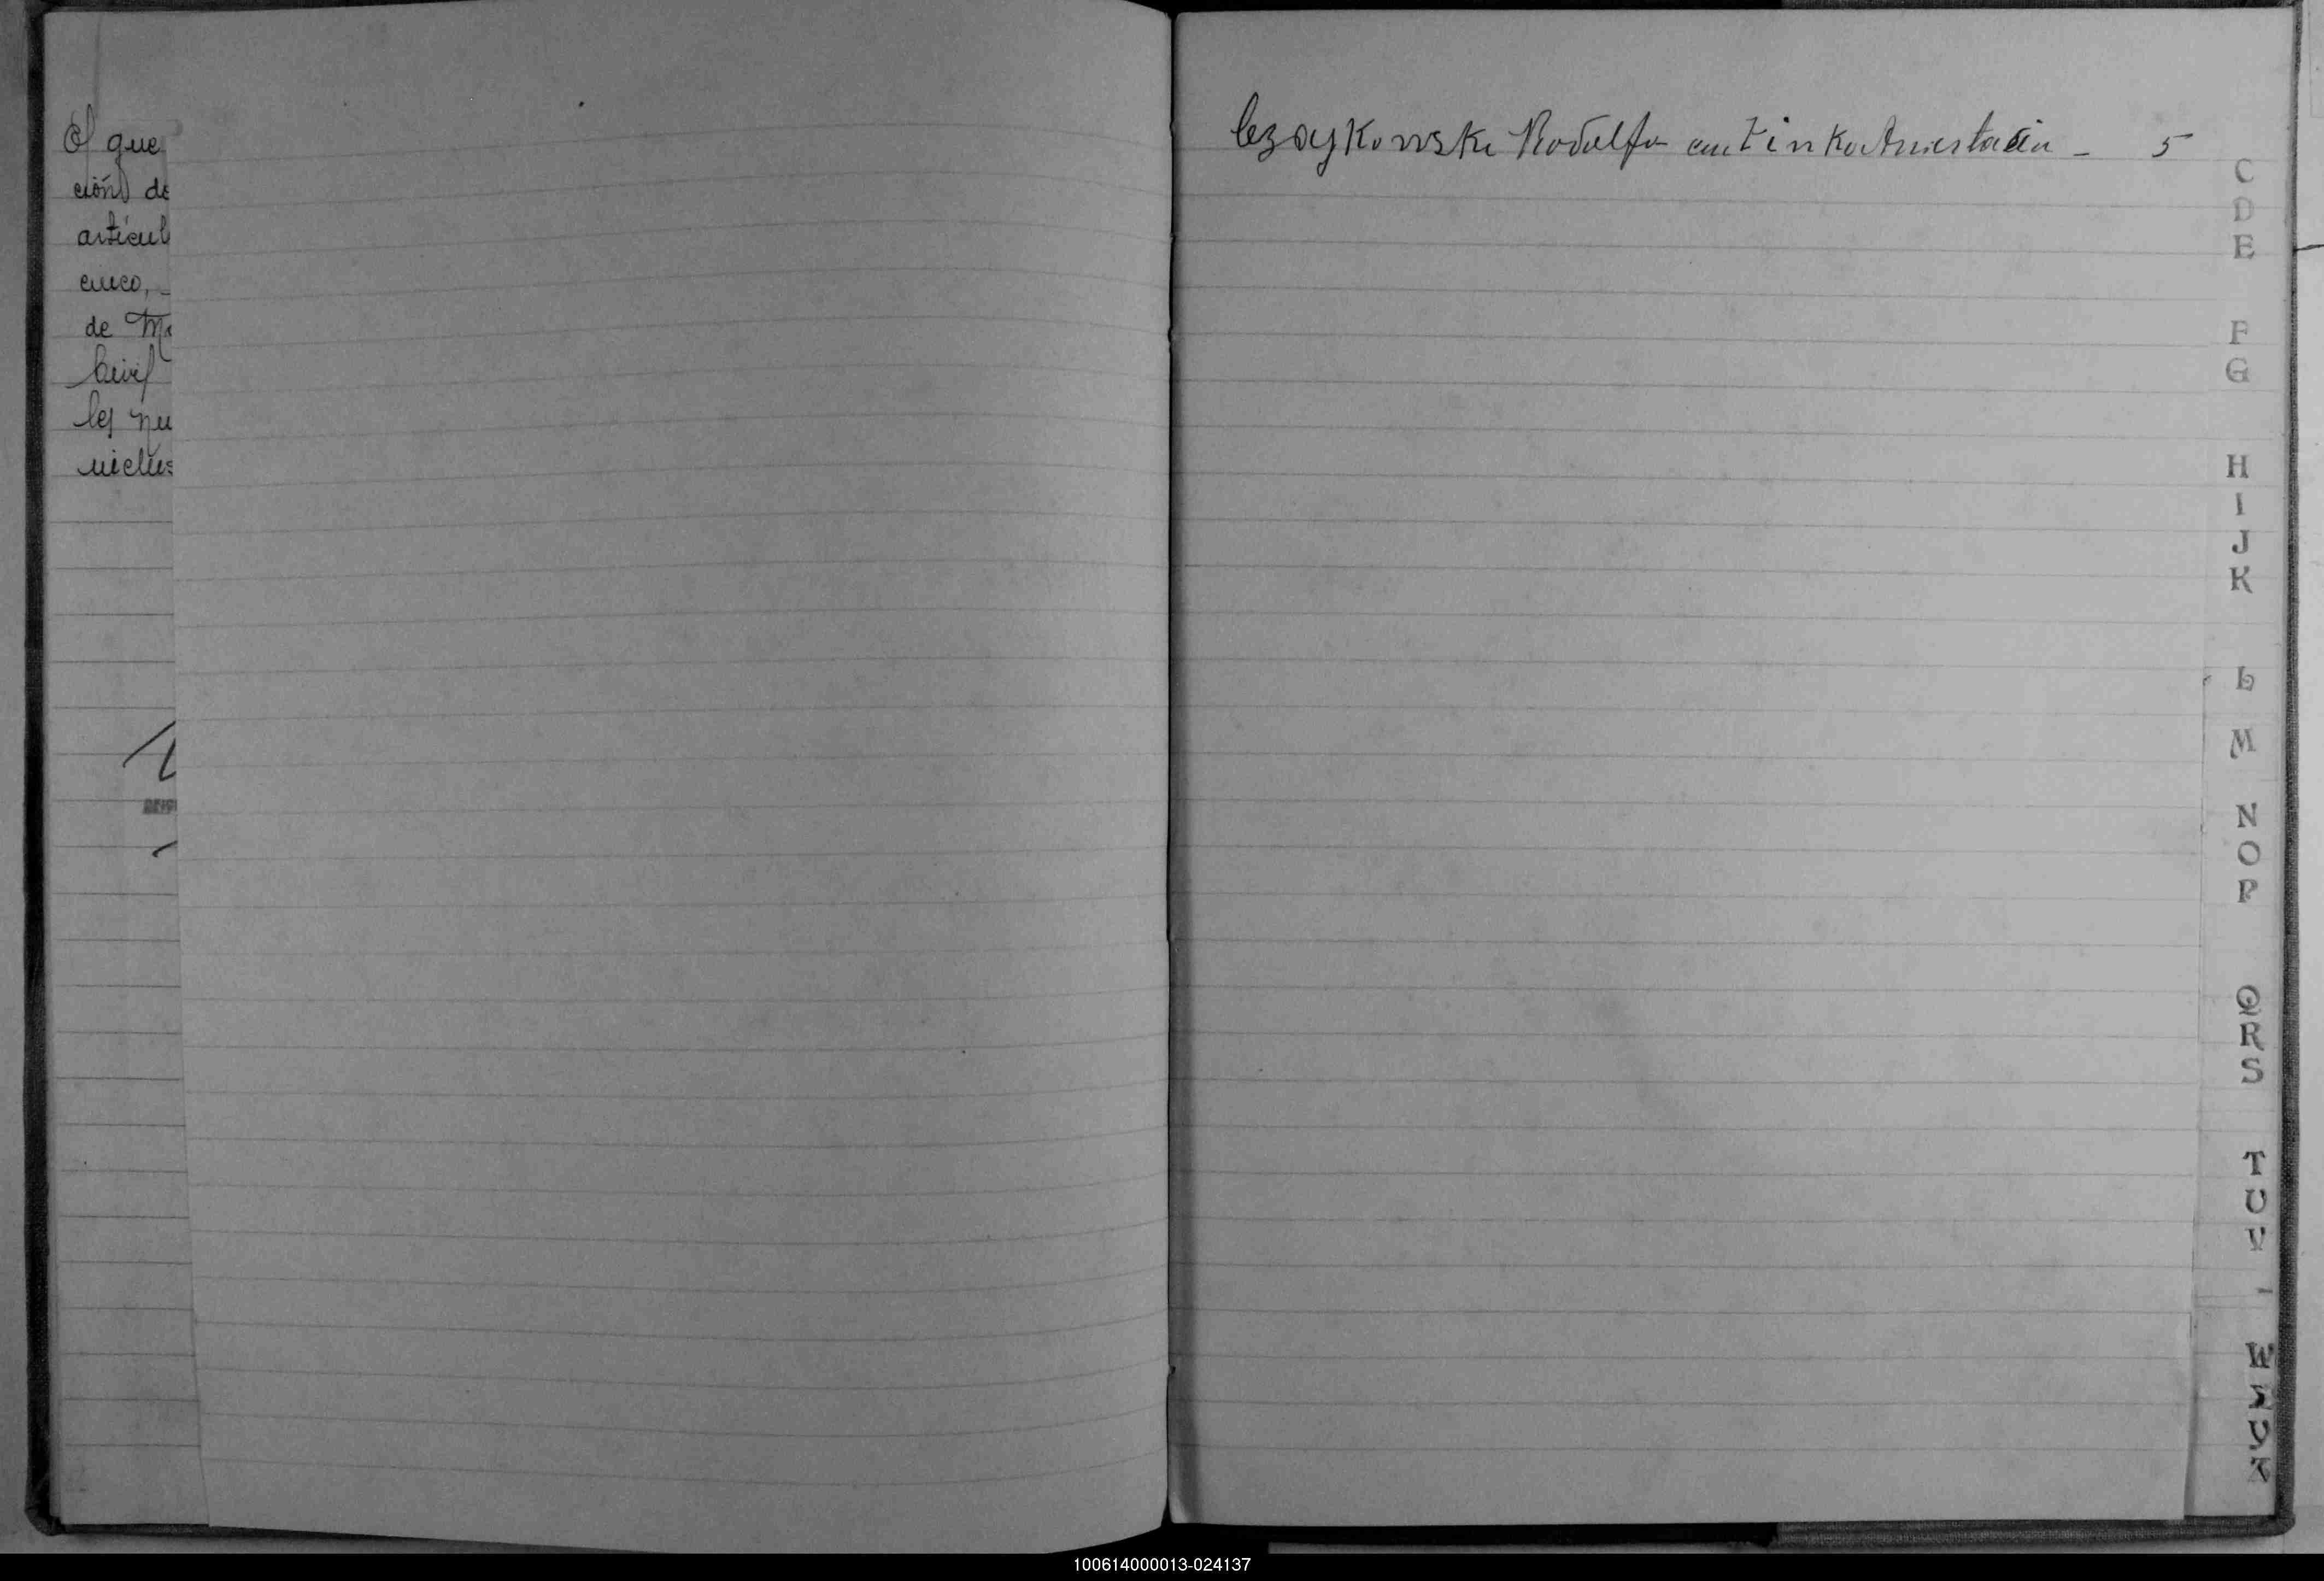 El que
ción de
articul
cinco,
de Ma
Civil
les nu
Czaykowski Rodolfo con Tinka Anastacia - 5
C
D
E
F
G
H
I
J
K
L
M
N
O
P
Q
R
S
T
U
V
W
X
Y
Z
100614000013-024137